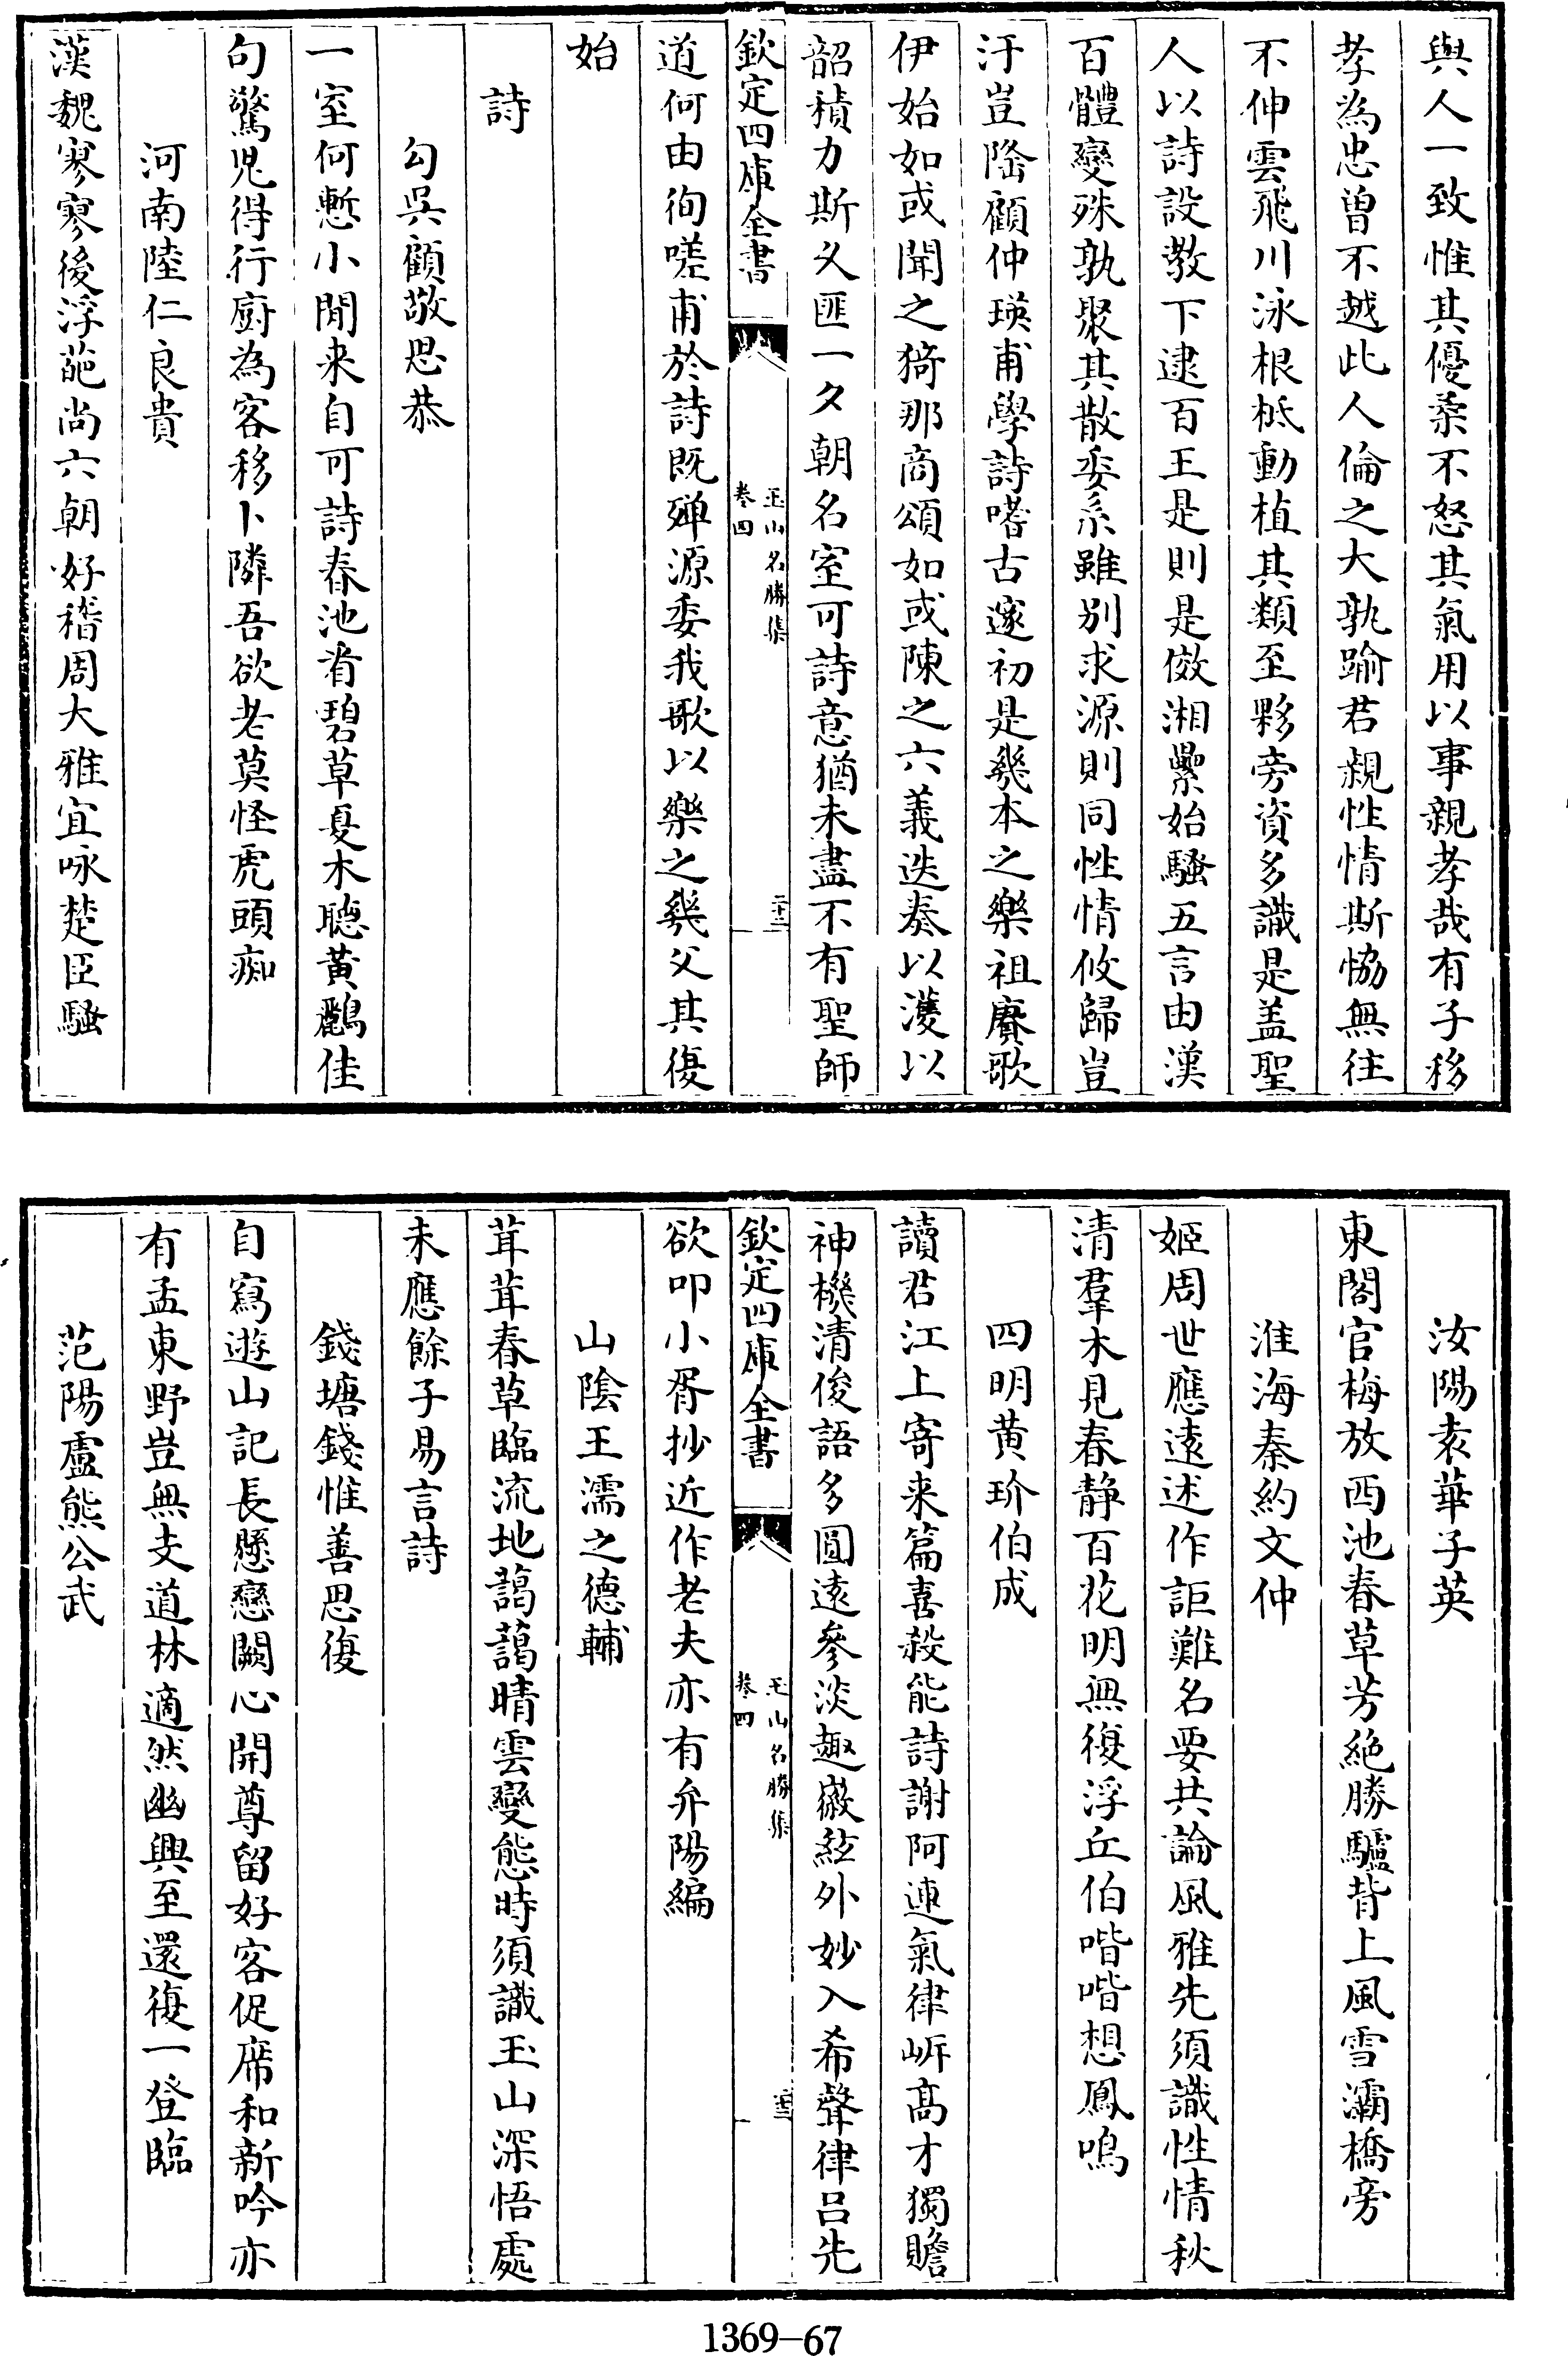 與人一致惟其優柔不怒其氣用以事親孝哉有子移
孝為忠曾不越此人倫之大孰踰君親性情斯恊無往
不伸雲飛川泳根柢動植其類至夥旁資多識是盖聖
人以詩設教下逮百王是則是傚湘纍始騷五言由漢
百體變殊孰聚其散委系雖别求源則同性情攸歸豈
汙豈隆顧仲瑛甫學詩嗜古邃初是幾本之樂祖賡歌
伊始如或聞之猗那商頌如或陳之六義迭奏以濩以
韶積力斯久匪一夕朝名室可詩意猶未盡不有聖師
欽定四庫全書
玉山名勝集
卷四
二十二
道何由徇嗟甫於詩既殫源委我歌以樂之幾父其復
始
詩
勾吳顧敬思恭
一室何慙小閒来自可詩春池㸔碧草夏木聽黄鸝佳
句驚児得行廚為客移卜隣吾欲老莫怪虎頭痴
河南陸仁良貴
漢魏寥寥後浮葩尚六朝好稽周大雅宜咏楚臣騷
汝陽袁華子英
東閣官梅放西池春草芳絶勝驢背上風雪灞橋旁
淮海秦約文仲
姬周世應遠述作詎難名要共論風雅先須識性情秋
清羣木見春静百花明無復浮丘伯喈喈想鳳鳴
四明黄玠伯成
讀君江上寄来篇喜殺能詩謝阿連氣律岍髙才獨贍
神機清俊語多圓遠參淡趣㣲絃外妙入希聲律吕先
欽定四庫全書
玉山名勝集
卷四
欲叩小胥抄近作老夫亦有弁陽編
山陰王濡之德輔
茸茸春草臨流地藹藹晴雲變態時須識玉山深悟處
未應餘子易言詩
錢塘錢惟善思復
自寫遊山記長懸戀闕心開尊留好客促席和新吟亦
有孟東野豈無支道林適然幽興至還復一登臨
范陽盧熊公武
1369-67